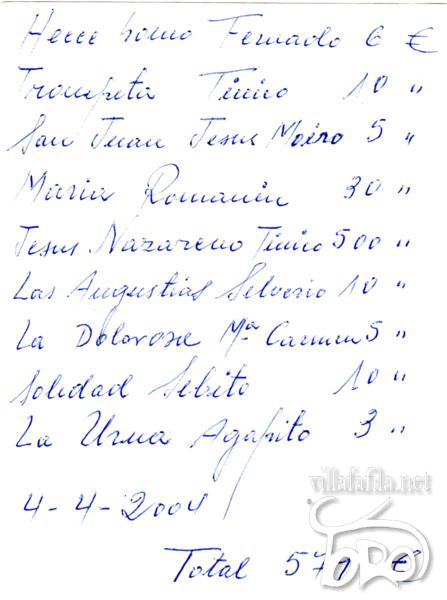 Hecce homo Fernado 6 €
Trompeta Tinico 10 "
San Juan Jesus Moiro 5 "
Maria Romanin 30 "
Jesus Nazareno Tinico 500 "
Las Augustias Selverio 10 "
La Dolorosa Mª Carmen 5 "
Soledad Sebito 10 "
La Urna Agapito 3 "
vilafafila.net
4-4-2004
Total 579 €